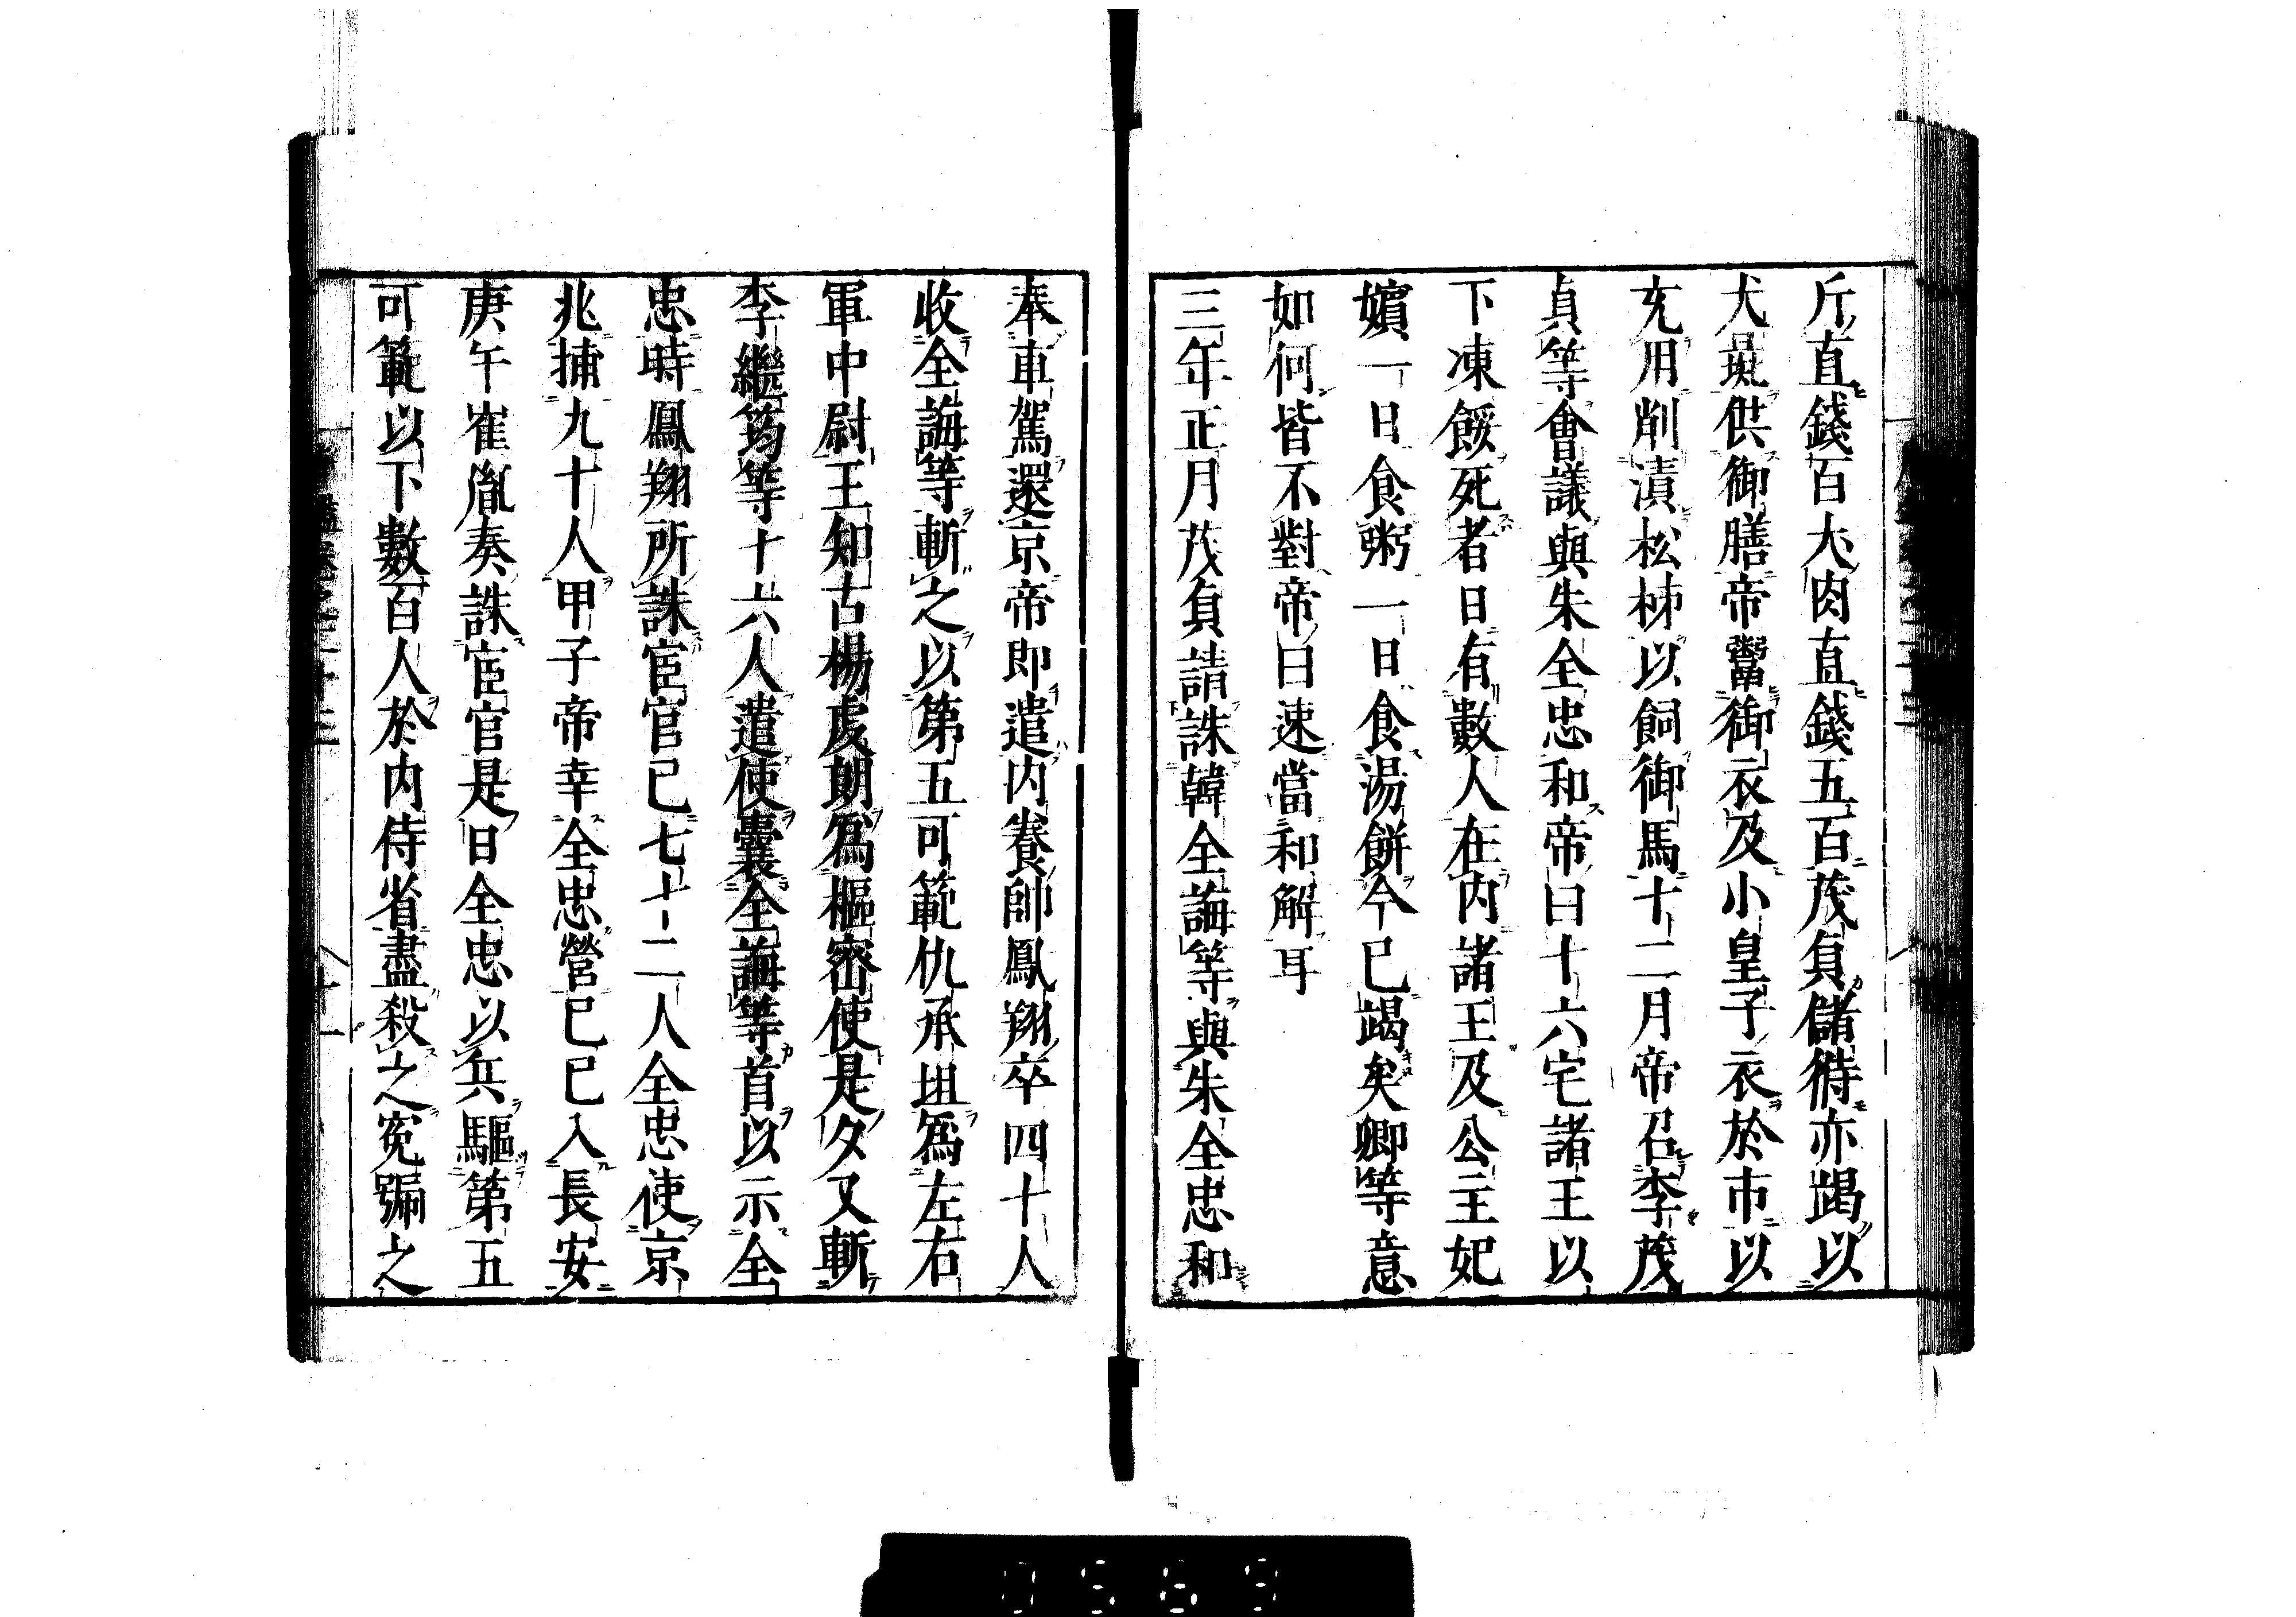 斤直錢百犬肉直錢五百茂貞儲偫亦竭以
犬彘供御膳帝鬻御衣及小皇子衣於市以
充用削漬松柹以飼御馬十二月帝召李茂
貞等會議與朱全忠和帝曰十六宅諸王以
下凍餒死者日有數人在内諸王及公主妃
嬪一日食粥一日食湯餅今已竭矣卿等意
如何皆不對帝曰速當和解耳
三年正月茂貞請誅韓全誨等與朱全忠和
奉車駕還京帝即遣内養帥鳳翔卒四十人
收全誨等斬之以第五可範仇承坦爲左右
軍中尉王知古楊虔朗爲樞密使是夕又斬
李繼筠等十六人遣使囊全誨等首以示全
忠時鳳翔所誅宦官已七十二人全忠使京
兆捕九十人甲子帝幸全忠營己巳入長安
庚午崔胤奏誅宦官是日全忠以兵驅第五
可範以下數百人於内侍省盡殺之寃號之